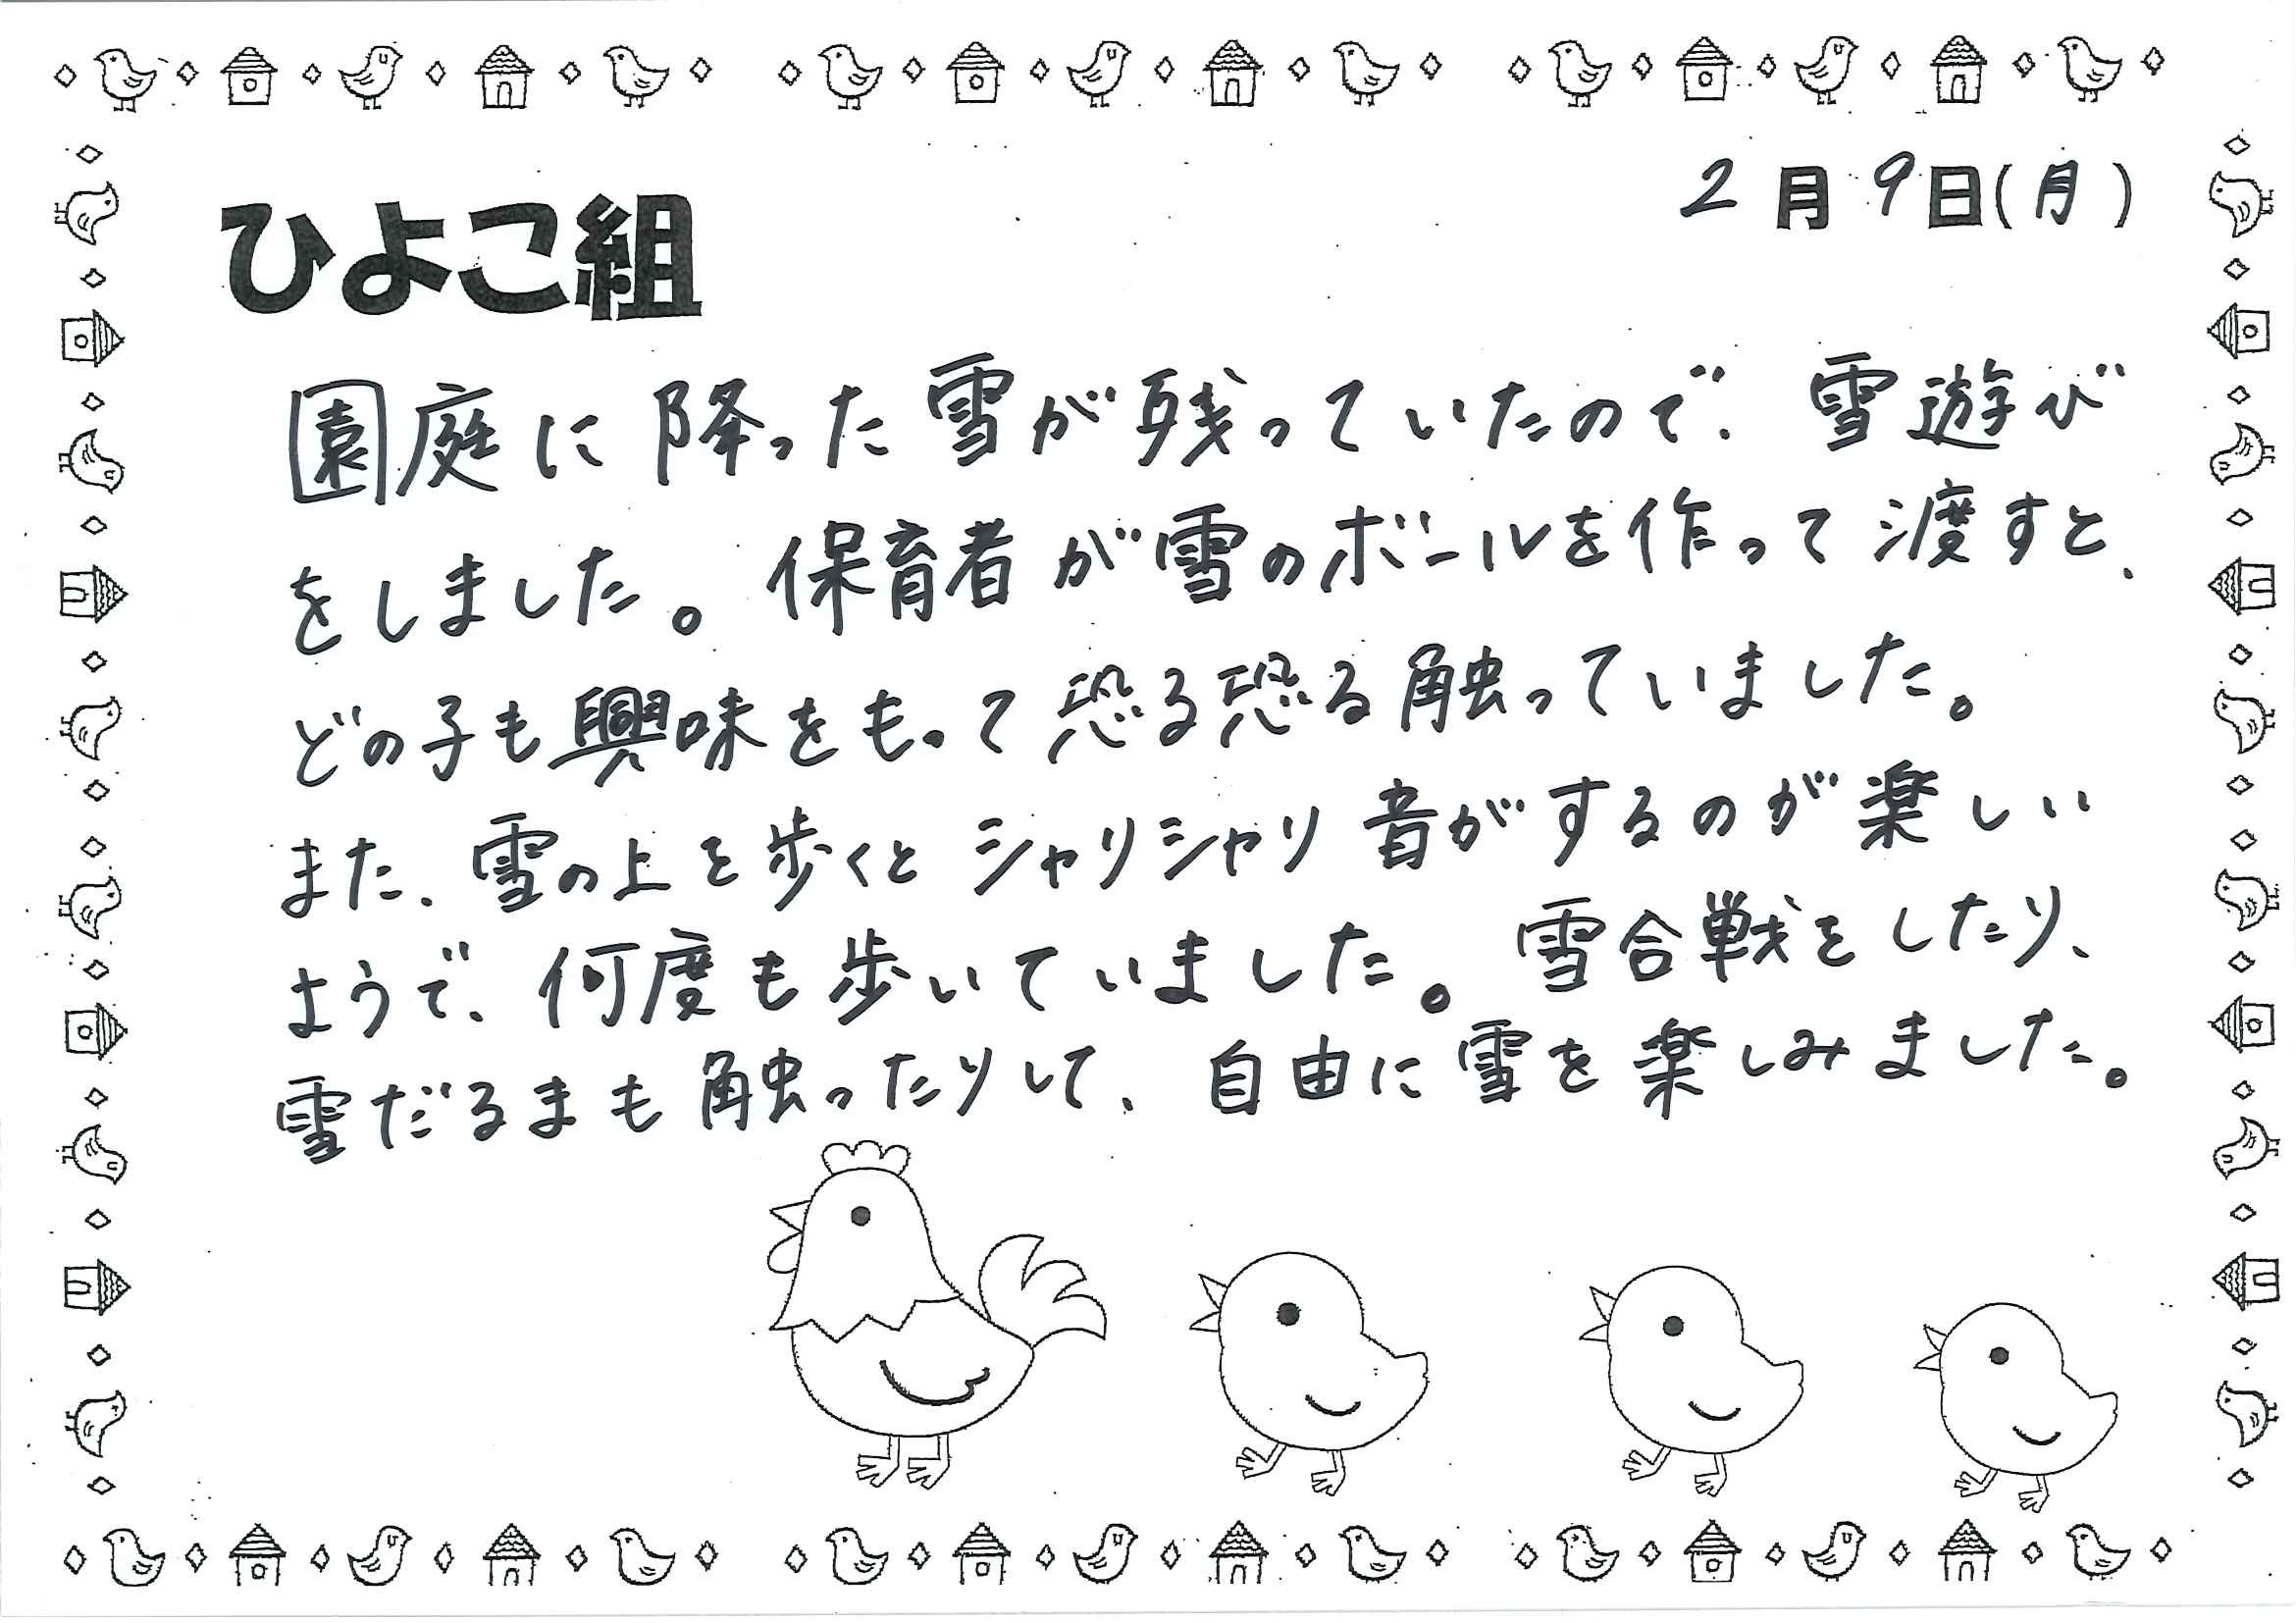 2月9日(月)
ひよこ組
園庭に降った雪が残っていたので、雪遊び
をしました。保育者が雪のボールを作って渡すと、
どの子も興味をもって恐る恐る触っていました。
また、雪の上を歩くとシャリシャリ音がするのが楽しい
ようで、何度も歩いていました。雪合戦をしたり、
雪だるまも触ったりして、自由に雪を楽しみました。